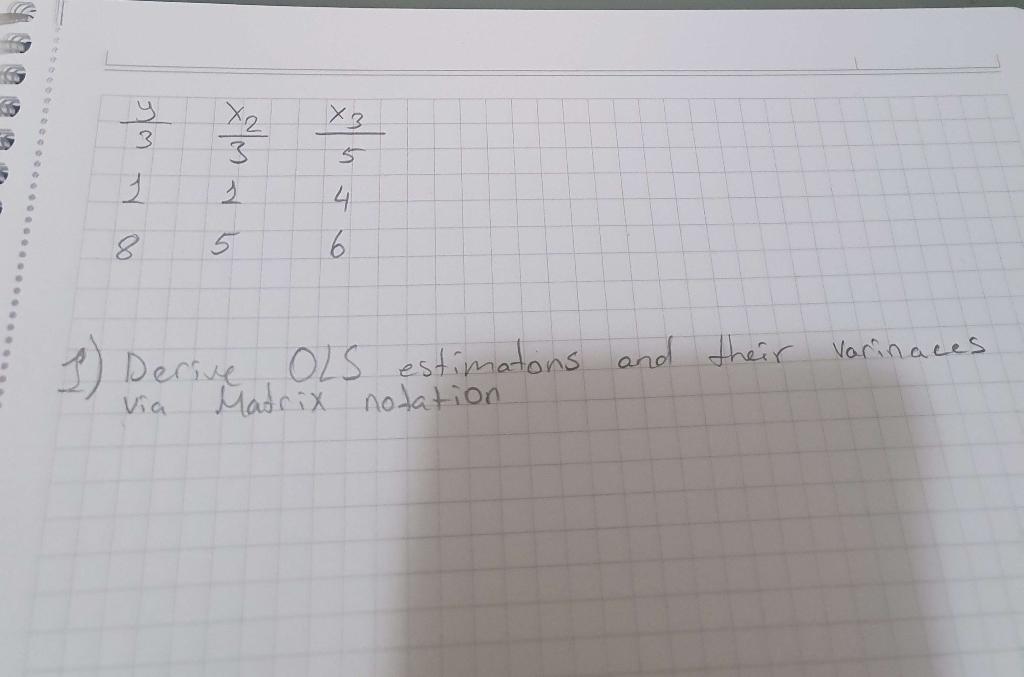 y x2 x3
3 3 5
1 1 4
8 5 6
1) Derive OLS estimatons and their varinaces
via Matrix notation